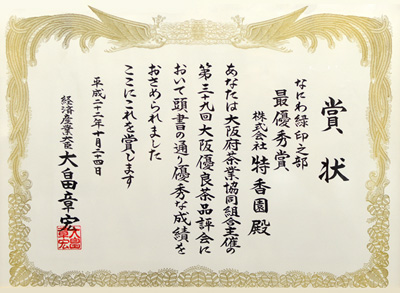 賞状
なにわ緑印之部
最優秀賞
株式会社 特香園殿
あなたは大阪府茶業協同組合主催の
第三十九回大阪優良茶品評会に
おいて頭書の通り優秀な成績を
おさめられました
ここにこれを賞します
平成二十二年十月二十四日
経済産業大臣 大畠章宏
大畠章宏